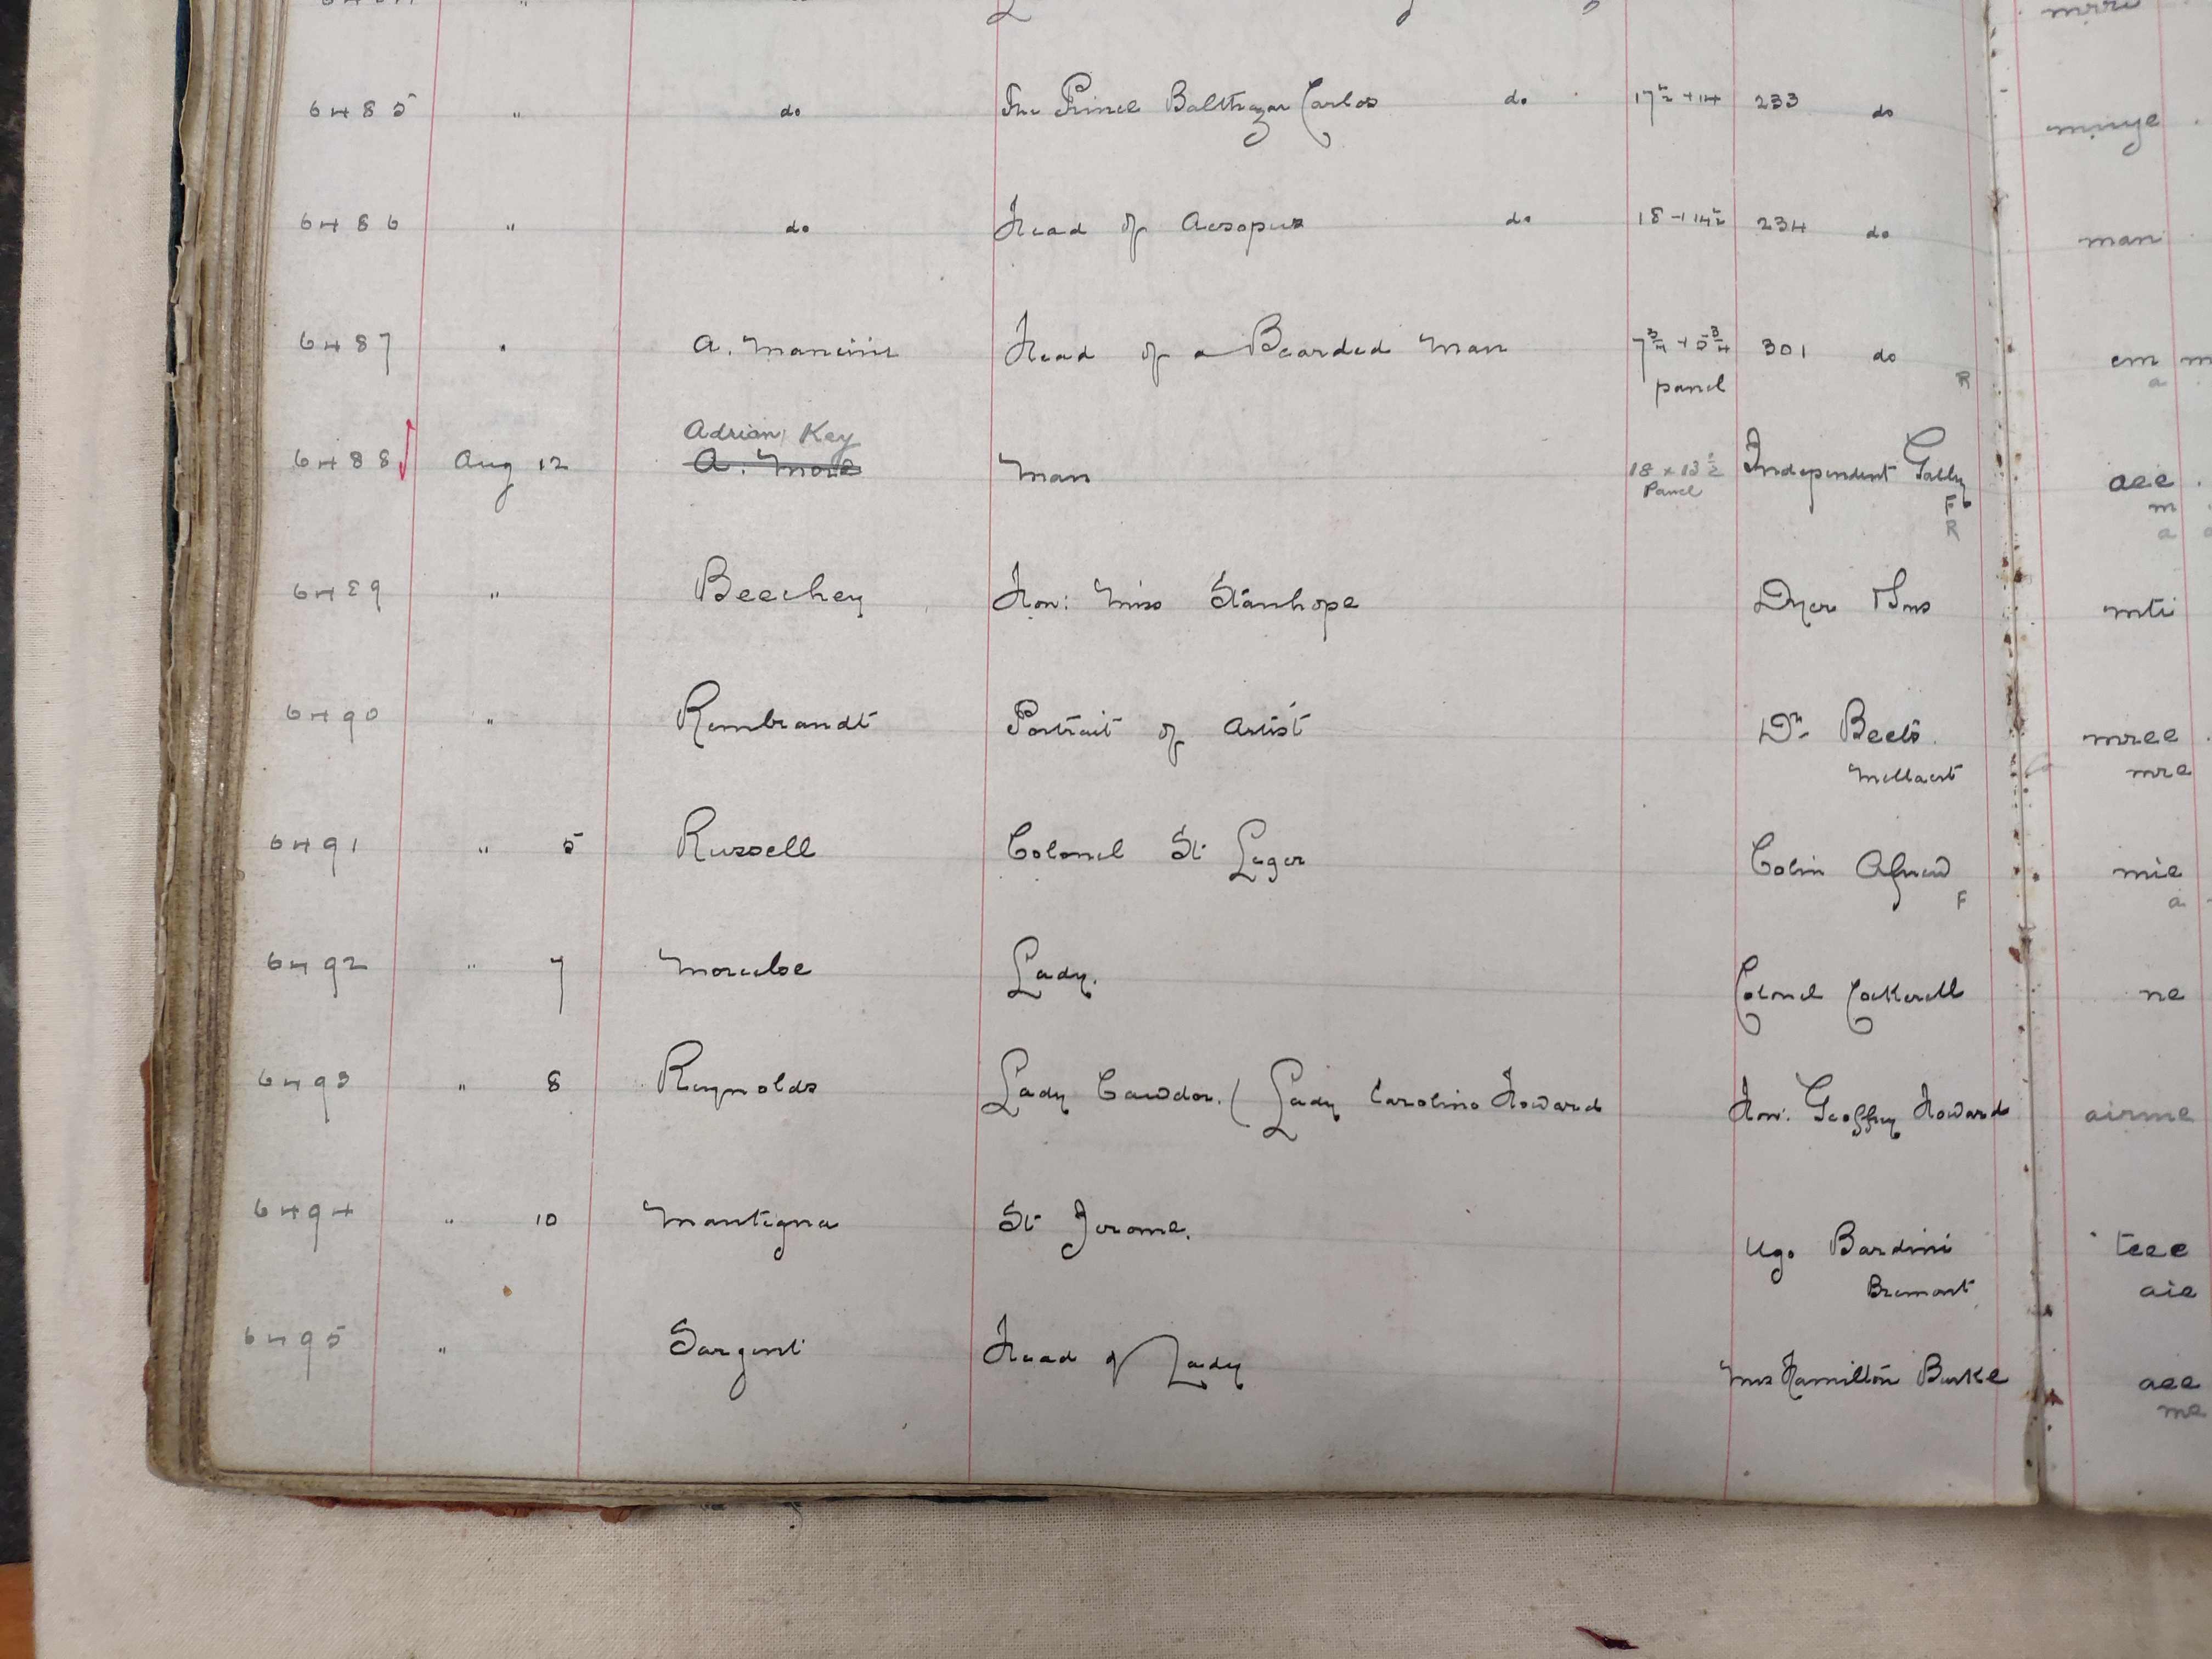 6485 " do The Prince Balthazar Carlos do 17½ + 14 233 do minye
6486 " do Head of Aesopus do 18 + 14½ 234 do man
6487 " A. Mancini Head of a Bearded Man 7¾ + 5¾ 301 do em m
panel R a
Adrian Key
6488 Aug 12 A. More Man 18 x 13½ Independent Gally aee
Panel F m
R a
6489 " Beechey Hon: Miss Stanhope Dyer & Sons mti
6490 " Rembrandt Portrait of Artist Dr Beets mree
Mellaert mre
6491 " 5 Russell Colonel St Leger Colin Agnew mie
F a
6492 " 7 Lady. Colonel Cockerell ne
6493 " 8 Reynolds Lady Cawdor. (Lady Caroline Howard Hon: Geoffry Howard airme
6494 " 10 Mantegna St Jerome. Ugo Bardini teee
Bremont aie
6495 " Sargent Head of Lady Mrs Hamilton Burke aee
me